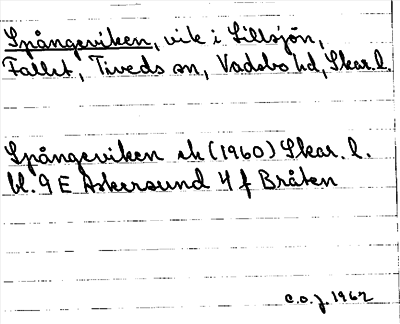 Spångeviken, vik i Lillsjön,
Fallet, Tiveds sn, Vadsbo hd, Skar. l.
Spångeviken ek (1960) Skar. l.
bl. 9 E Askersund 4 f Bråten
C.O.J. 1962